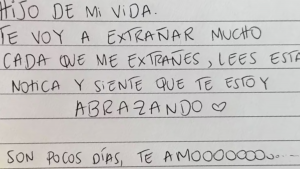 HIJO DE MI VIDA.
TE VOY A EXTRAÑAR MUCHO
CADA QUE ME EXTRAÑES, LEES ESTA
NOTICA Y SIENTE QUE TE ESTOY
ABRAZANDO ♡
SON POCOS DÍAS, TE AMOOOOOOOO...